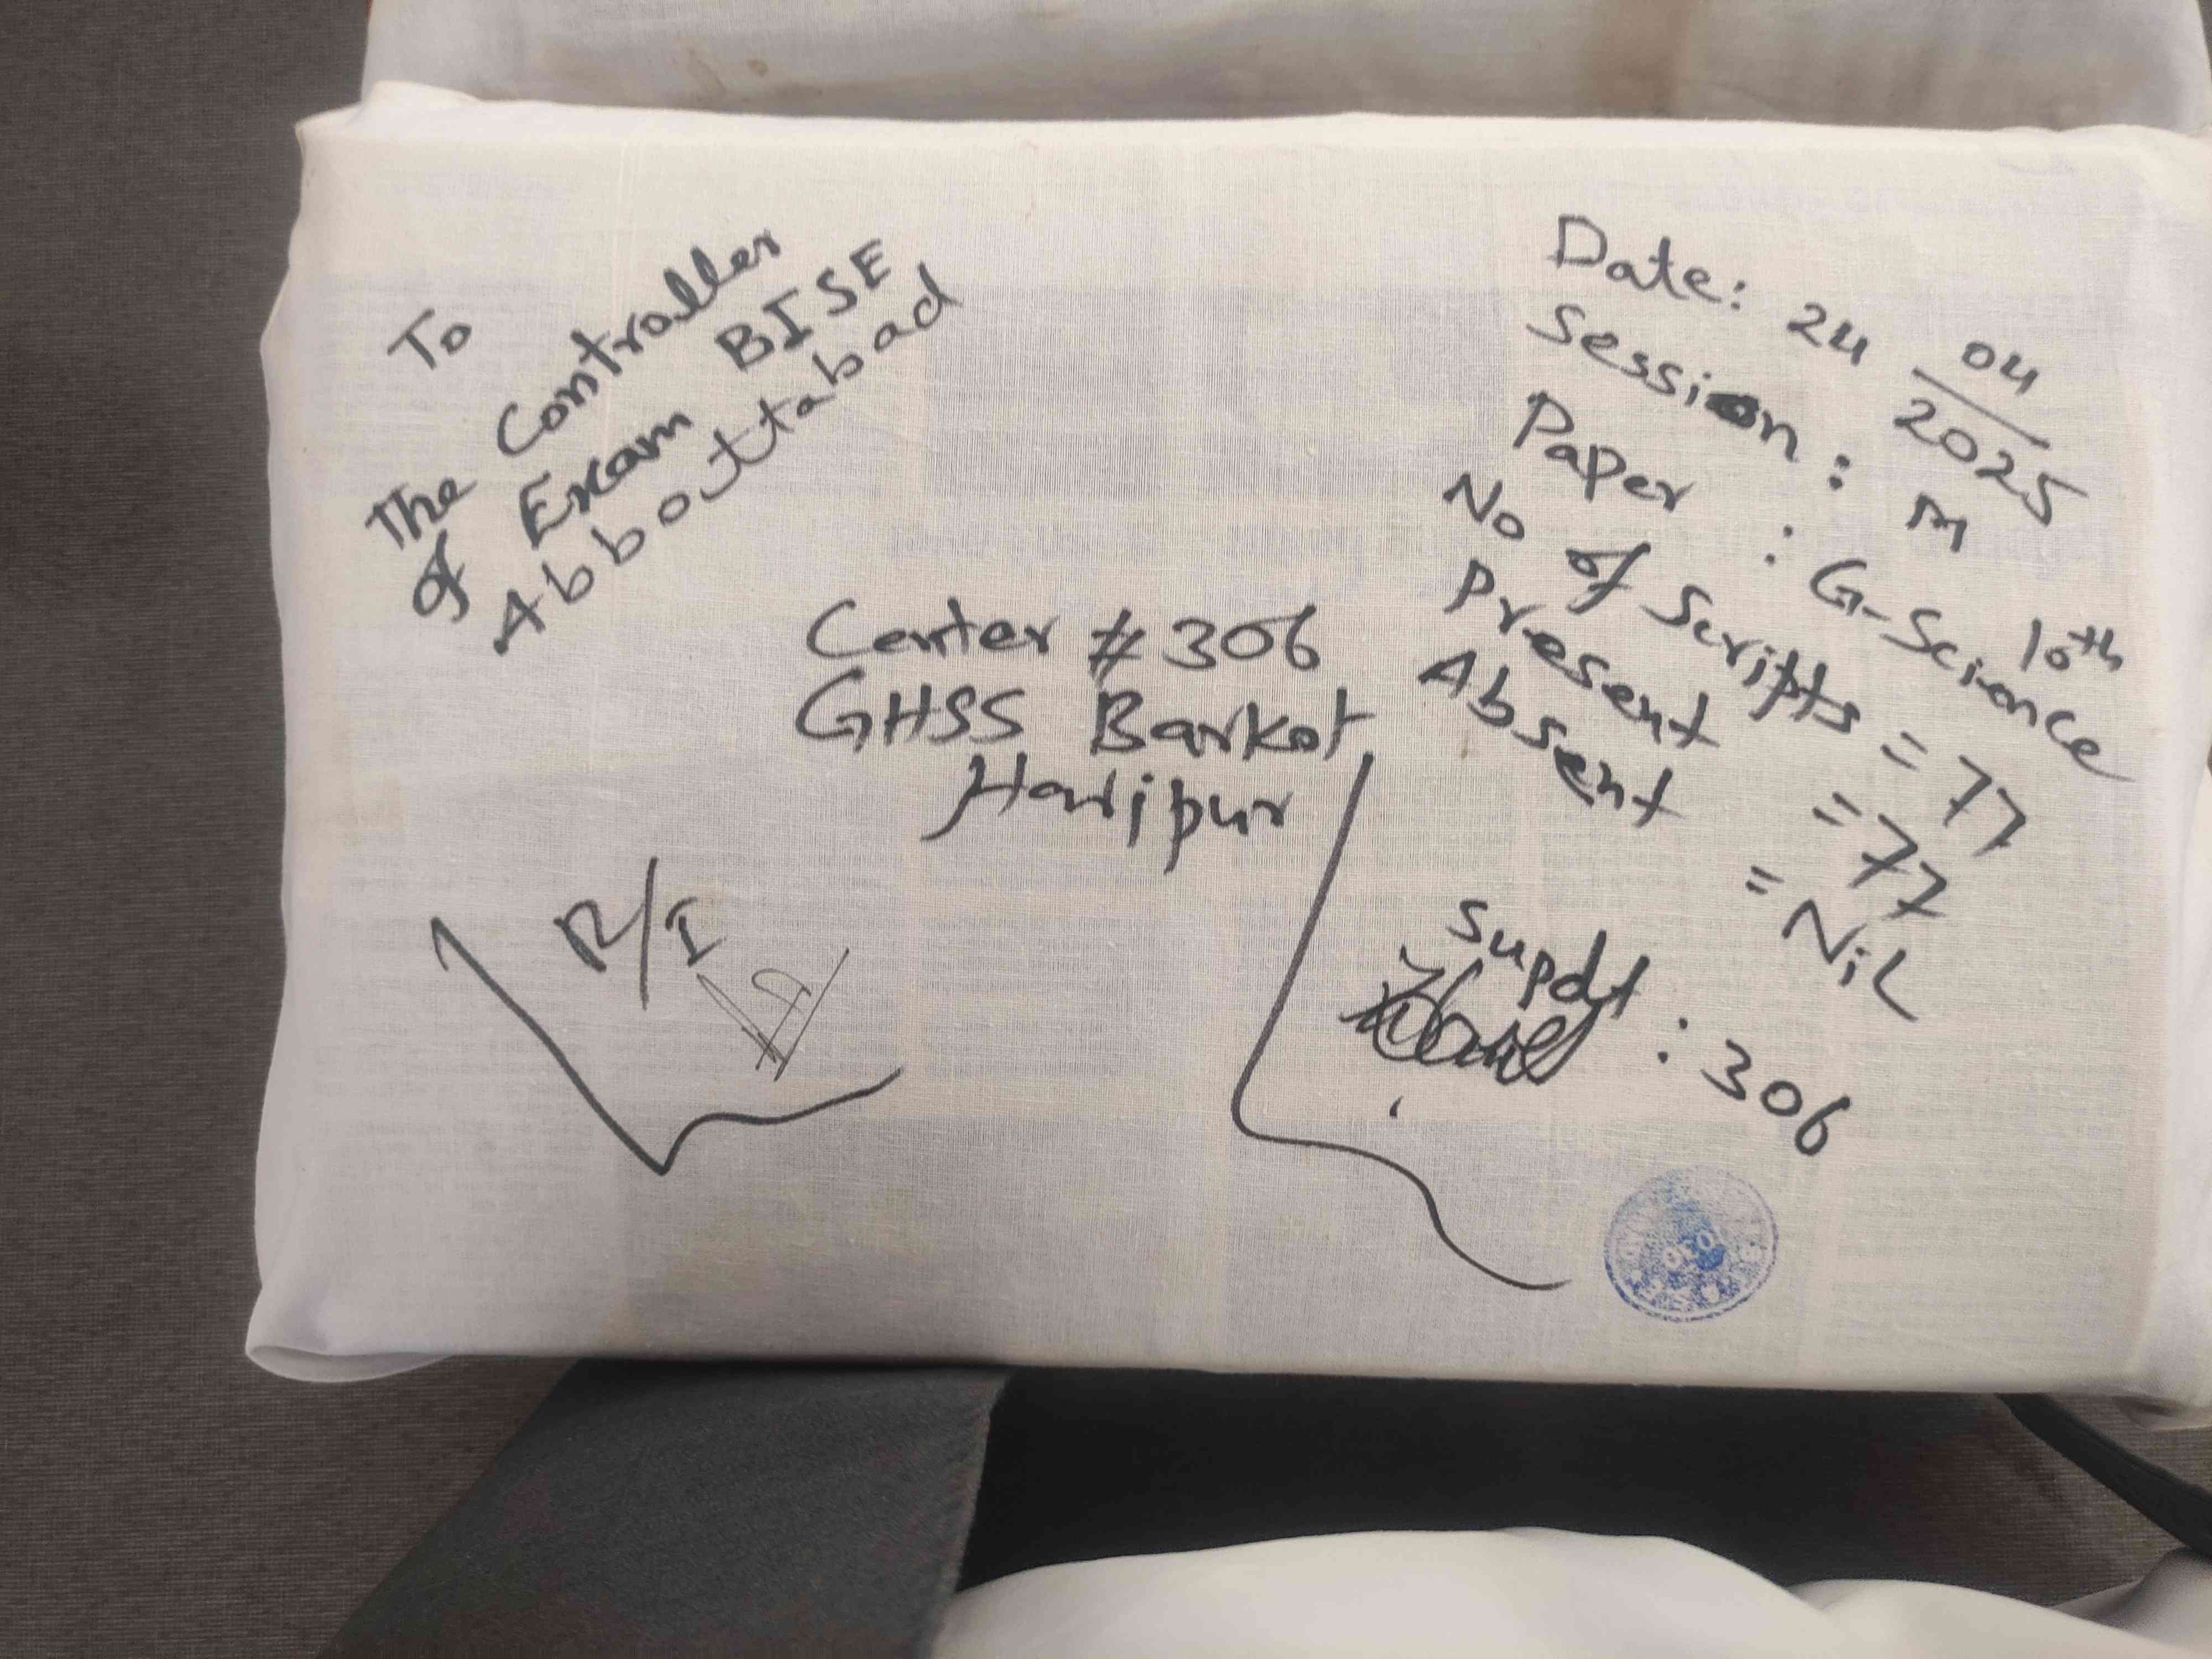 To
The Controller
of Exam BISE
Abbouttabad
Date: 24 04/2025
Session : M
Paper : G-Science 10th
No of Scripts = 77
Present = 77
Absent = NiL
Center # 306
GHSS Barkot
Haripur
R/I
Supdt : 306